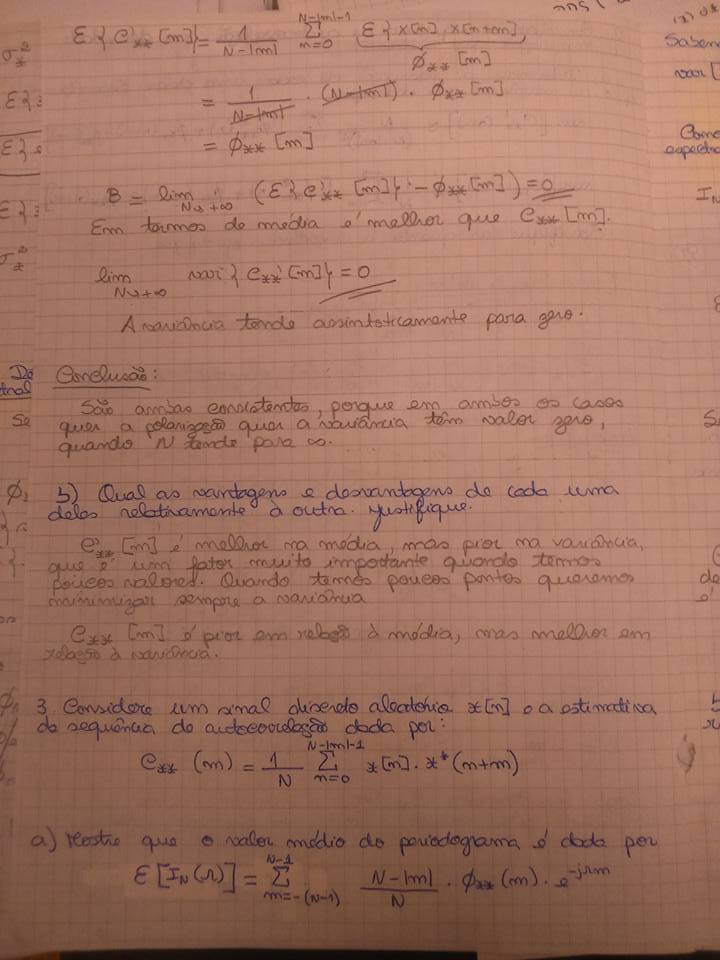 E{C'xx[m]} = 1/(N-|m|) Σ_{n=0}^{N-|m|-1} E{x[n] x[n+m]}
ϕxx[m]
= 1/(N-|m|) · (N-|m|) · ϕxx[m]
= ϕxx[m]
B = lim_{N→+∞} (E{C'xx[m]} - ϕxx[m]) = 0
Em termos de média é melhor que Cxx[m].
lim_{N→+∞} var{Cxx'[m]} = 0
A variância tende assintoticamente para zero.
Conclusão:
São ambas consistentes, porque em ambos os casos
quer a polarização quer a variância têm valor zero,
quando N tende para ∞.
b) Qual as vantagens e desvantagens de cada uma
delas relativamente à outra. Justifique.
C'xx[m] é melhor na média, mas pior na variância,
que é um fator muito importante quando temos
poucos valores. Quando temos poucos pontos queremos
minimizar sempre a variância
Cxx[m] é pior em relação à média, mas melhor em
relação à variância.
3. Considere um sinal discreto aleatório x[n] e a estimativa
da sequência de autocorrelação dada por:
Cxx(m) = 1/N Σ_{n=0}^{N-|m|-1} x[n] · x*(n+m)
a) Mostre que o valor médio do periodograma é dado por
E[I_N(Ω)] = Σ_{m=-(N-1)}^{N-1} (N-|m|)/N · ϕxx(m) · e^{-jΩm}